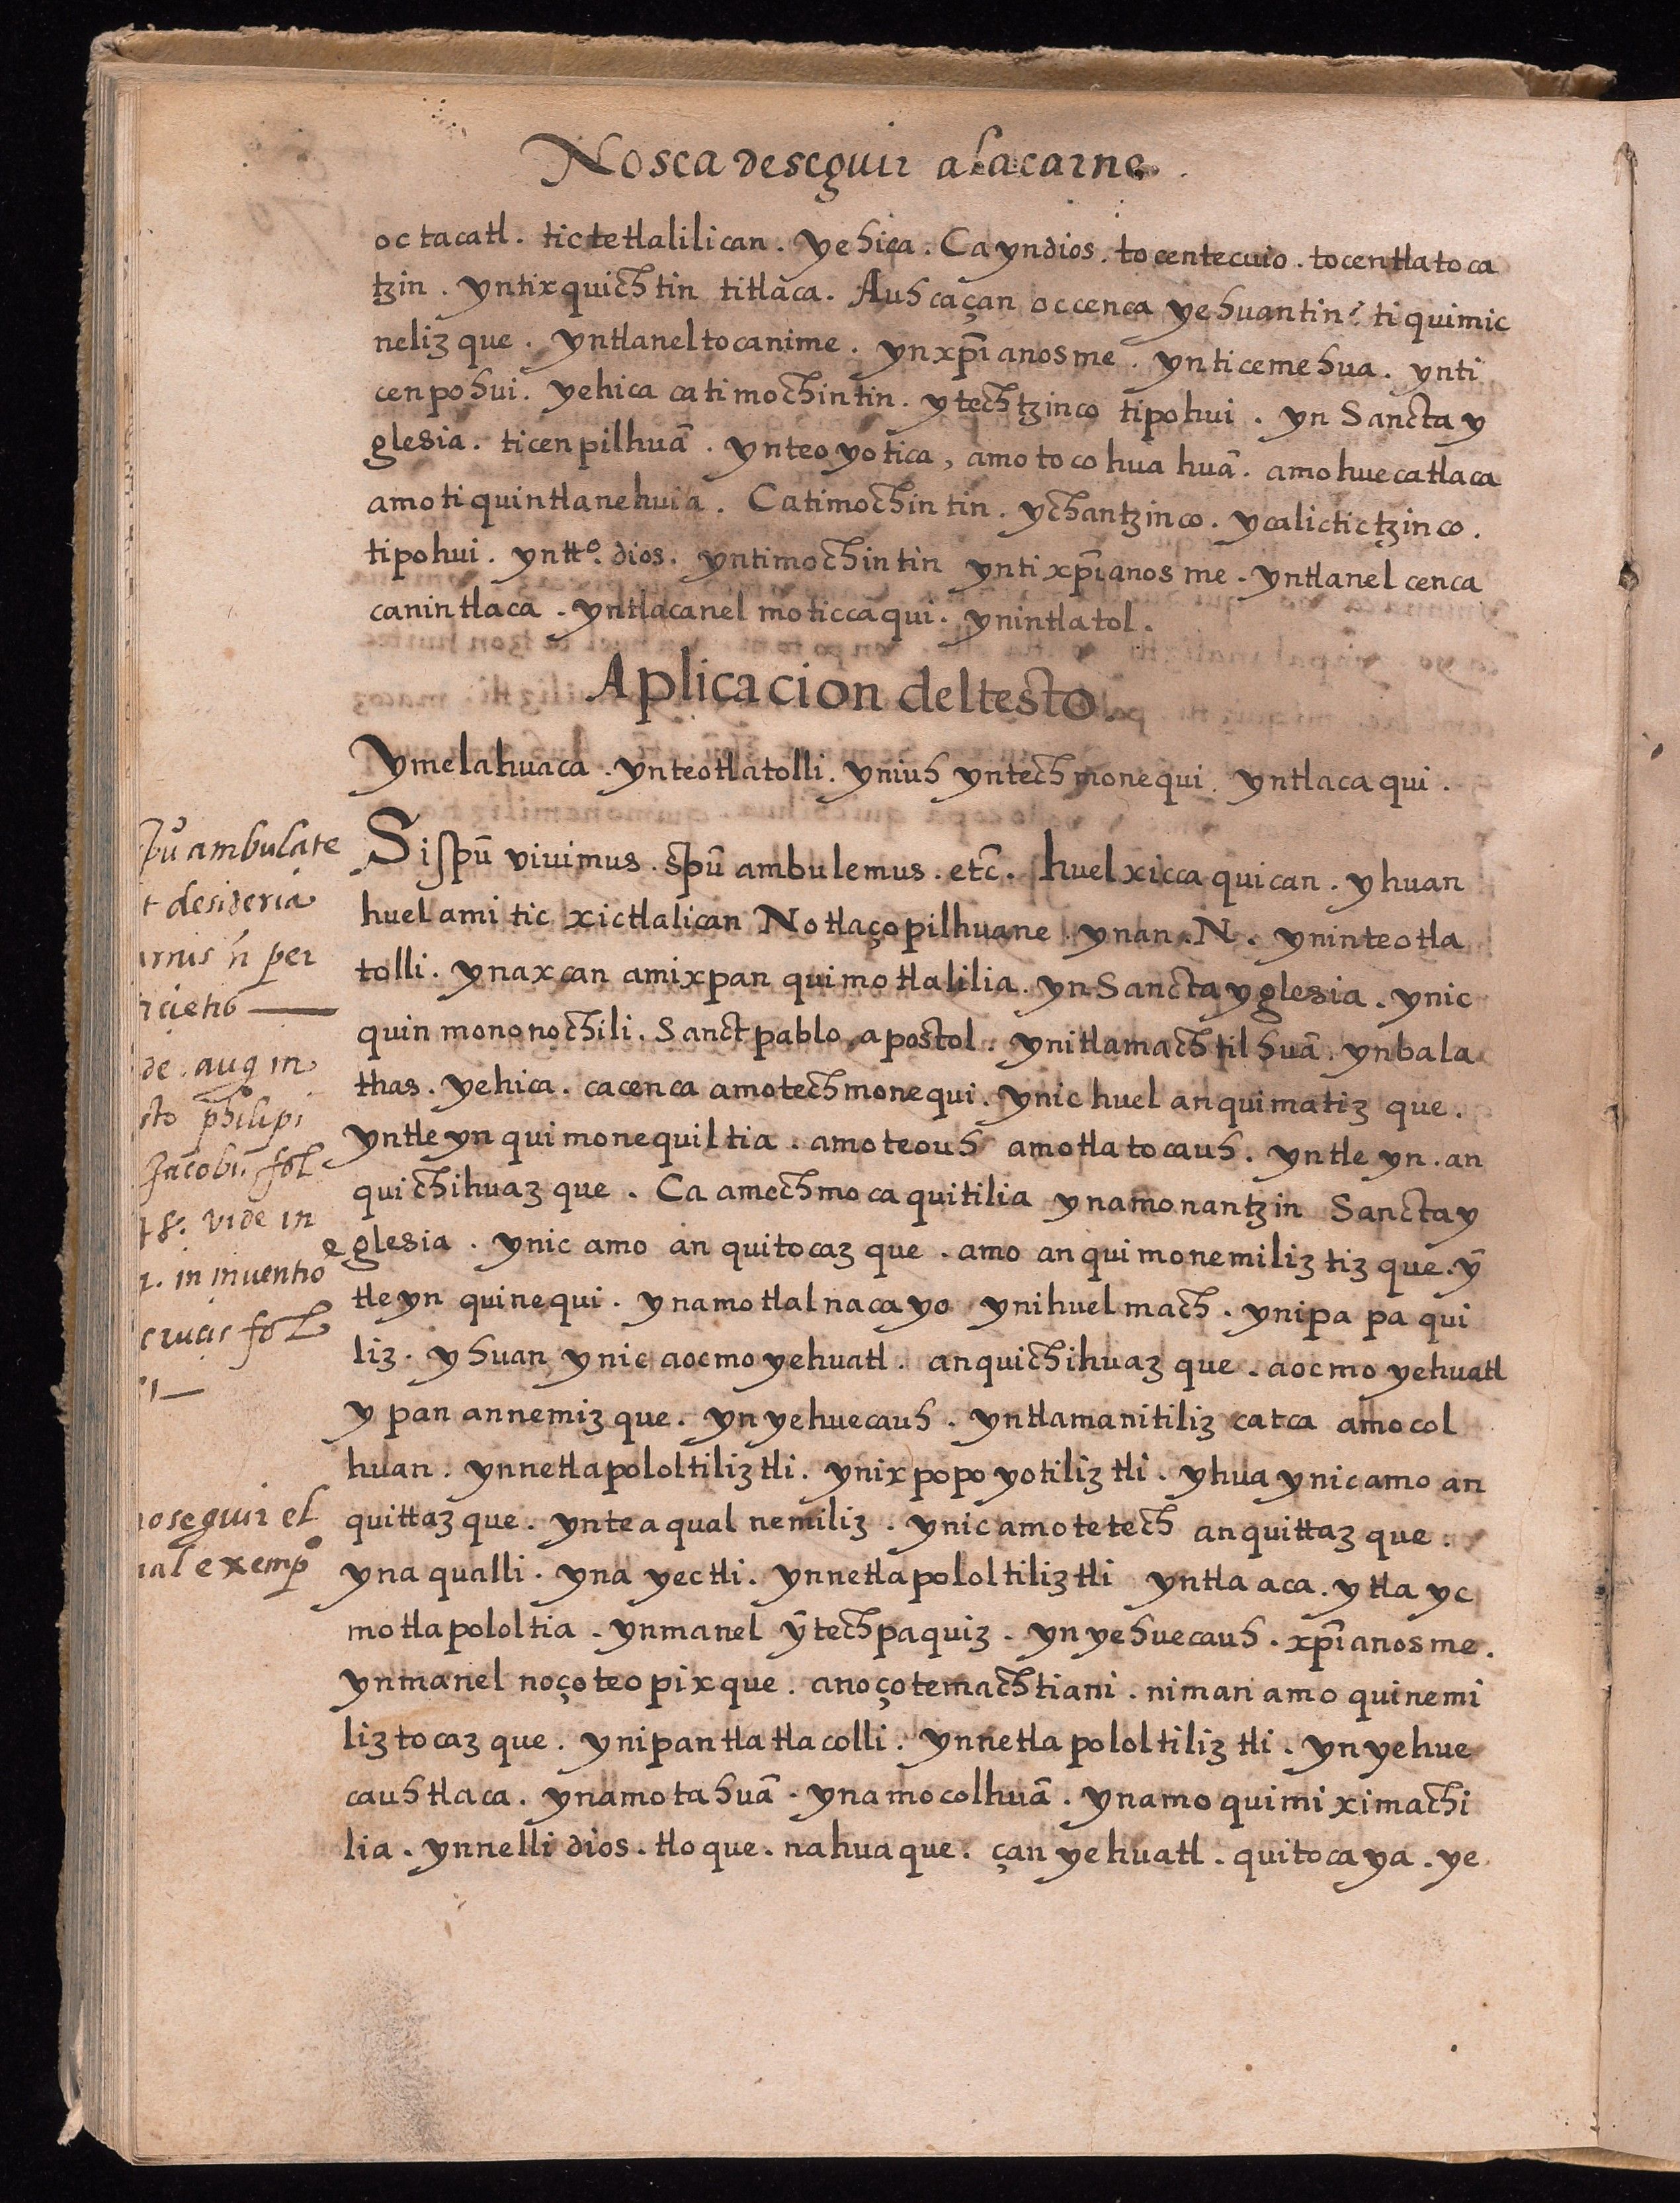 Nosca deseguir alacarne.
octacatl. tictetlalilican. yehica. Ca yn dios. tocentecuio. tocentlatoca
tzin. yntixquichtin titlaca. Auh caçan occenca yehuantin: tiquimic
neliz que. yntlaneltocanime. ynxp̄ianosme. ynticemehua. ynti
cenpohui. yehica catimochintin. ytechtzinco tipohui. yn Sancta y
glesia. ticenpilhuā. ynteoyotica, amo tocohuahuā. amo huecatlaca
amo tiquintlanehuia. Catimochintin. ychantzinco. ycalictictzinco.
tipohui. yntt.º dios. yntimochintin yntixp̄ianosme. yntlanel cenca
canintlaca. yntlacanel moticcaqui. ynintlatol.
Aplicacion deltesto.
Ymelahuaca. ynteotlatolli. yniuh yntech monequi. yntlacaqui.
Si spū vivimus. spū ambulemus. etc̄. huel xiccaquican. yhuan
huel amitic xictlalican Notlaçopilhuane. ynan. N. yninteotla
tolli. ynaxcan amixpan quimotlalilia. yn Sancta yglesia. ynic
quin mononochili. Sanct pablo, apostol. ynitlamachtilhuā. ynbala
thas. yehica. cacenca amotechmonequi. ynic huel anquimatiz que.
yntleyn quimonequiltia. amoteouh amotlatocauh. yntleyn. an
quichihuaz que. Ca amechmocaquitilia ynamonantzin Sancta y
eglesia. ynic amo anquitocaz que. amo anquimonemiliztiz que. ȳ
tleyn quinequi. ynamotlalnacayo ynihuelmach. ynipapaqui
liz. yhuan ynic aocmo yehuatl. anquichihuaz que. aocmo yehuatl
ypan annemiz que. ynyehuecauh. yntlamanitiliz catca amocol
huan. ynnetlapololtiliztli. ynixpopoyotiliztli. yhua ynicamo an
quittaz que. ynteaqual nemiliz. ynicamo tetech anquittaz que.
ynaqualli. yna yectli. ynnetlapololtiliztli yntla aca. ytla yc
motlapololtia. ynmanel ȳtechpaquiz. ynyehuecauh. xp̄ianosme.
ynmanel noço teopixque. anoço temachtiani. niman amo quinemi
liztocaz que. ynipantlatlacolli. ynnetlapololtiliztli. ynyehue
cauhtlaca. ynamotahuā. ynamocolhuā. ynamo quimiximachi
lia. ynnelli dios. tloque. nahuaque. çan yehuatl. quitocaya. ye
pū ambulate
t desideria
arnis n̄ per
icietis
de. aug in
sto philipi
Jacobi fol
48. vide in
r. in inventio
crucis fol
noseguir el
mal exempo